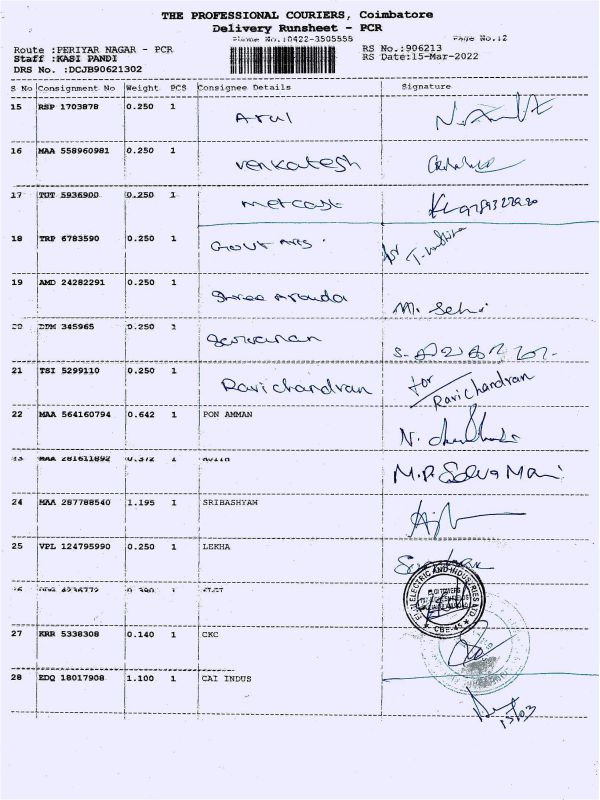 THE PROFESSIONAL COURIERS, Coimbatore
Delivery Runsheet - PCR
Phone No.:0422-3505555 Page No.:2
Route :PERIYAR NAGAR - PCR RS No.:906213
Staff :KASI PANDI RS Date:15-Mar-2022
DRS No. :DCJB90621302
S No Consignment No Weight PCS Consignee Details Signature
15 RSP 1703878 0.250 1 Arul
16 MAA 558960981 0.250 1 Venkatesh
17 TUT 5936900 0.250 1
18 TRP 6783590 0.250 1 Govt Arts. for
19 AMD 24282291 0.250 1 Shree
M. Selvi
20 DDM 345965 0.250 1 Saravanan
21 TSI 5299110 0.250 1 Ravichandran for
Ravichandran
22 MAA 564160794 0.642 1 PON AMMAN
23 MAA 281611892 0.372 1
M.P. Selva Mani
24 MAA 287788540 1.195 1 SRIBASHYAM
25 VPL 124795990 0.250 1 LEKHA
26 4236772 0.390 1
ELGI ELECTRIC AND INDUSTRIES LTD
CBE-45
27 KRR 5338308 0.140 1 CKC
28 EDQ 18017908 1.100 1 CAI INDUS
15/03